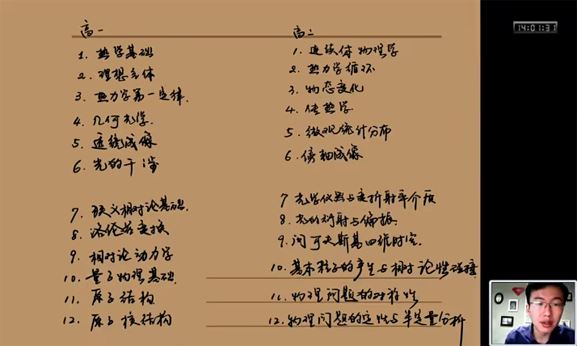 高一
1. 热学基础
2. 理想气体
3. 热力学第一定律.
4. 几何光学.
5. 透镜成像
6. 光的干涉
7. 狭义相对论基础.
8. 洛伦兹变换
9. 相对论动力学
10. 量子物理基础.
11. 原子结构
12. 原子核结构
高二
1. 连续体物理学
2. 热力学循环
3. 物态变化
4. 传热学
5. 微观统计分布
6. 傍轴成像
7 光学仪器与变折射率介质
8. 光的衍射与偏振
9. 闵可夫斯基四维时空
10. 基本粒子的产生与相对论性碰撞
11. 物理问题的对称性
12. 物理问题的定性与半定量分析
14:01:31